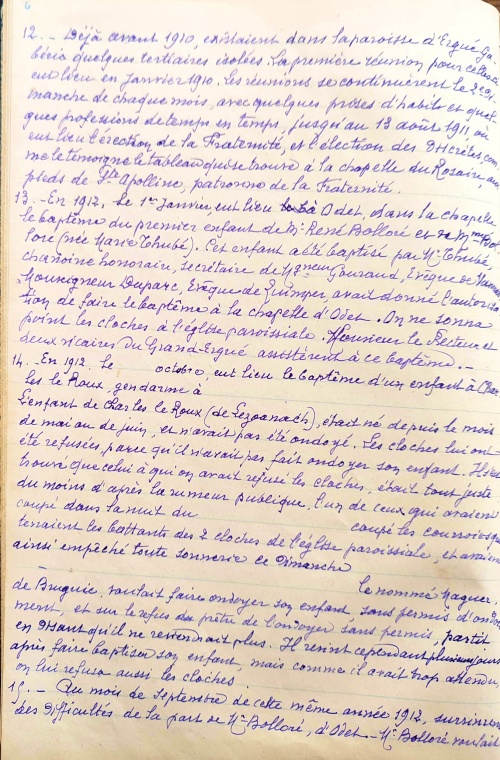 6
12. - Déjà avant 1910, existaient dans la paroisse d'Ergué Ga
béric quelques tertiaires isolées. La première réunion pour
eut lieu en Janvier 1910. Les réunions se continuèrent le 2e di
manche de chaque mois, avec quelques prises d'habits et quel
ques professions de temps en temps, jusqu'au 13 août 1911, où
eut lieu l'érection de la Fraternité, et l'élection des Discrètes com
me le témoigne le tableau qui se trouve à la chapelle du Rosaire, aux
pieds de Ste Apolline, patronne de la Fraternité.
13. - En 1912, le 1er Janvier eut lieu à Odet, dans la chapelle
le baptême du premier enfant de Mr René Bolloré et de Mme Bol
loré (née Marie Thubé). Cet enfant a été baptisé par Mr Thubé
chanoine honoraire, secrétaire de Mgneur Gouraud, Evêque de Vannes
Monseigneur Duparc, Evêque de Quimper, avait donné l'autorisa
tion de faire le baptême à la chapelle d'Odet. On ne sonna
point les cloches à l'église paroissiale. Monsieur le Recteur et
deux vicaires du Grand-Ergué assistèrent à ce baptême. -
14. - En 1912. le octobre, eut lieu le baptême d'un enfant à Char
les le Roux, gendarme à
L'enfant de Charles le Roux (de Lezoanach), était né depuis le mois
de mai ou de juin, et n'avait pas été ondoyé. Les cloches lui ont
été refusées, parce qu'il n'avait pas fait ondoyer son enfant. Il s'est
trouvé que celui à qui on avait refusé les cloches, était tout juste
du moins d'après la rumeur publique, l'un de ceux qui avaient
coupé dans la nuit du coupé les courroies qui
tenaient les battants des 2 cloches de l'église paroissiale, et avaient
ainsi empêché toute sonnerie ce Dimanche
le nommé Naguer
de Bruguic, voulait faire ondoyer son enfant sans permis d'ondoie
ment, et sur le refus du prêtre de l'ondoyer sans permis, partit
en disant qu'il ne reviendrait plus. Il revint cependant plusieurs jours
après faire baptiser son enfant, mais comme il avait trop attendu,
on lui refusa aussi les cloches
15. - Au mois de Septembre de cette même année 1912, survinrent
des difficultés de la part de Mr Bolloré, d'Odet - Mr Bolloré voulait